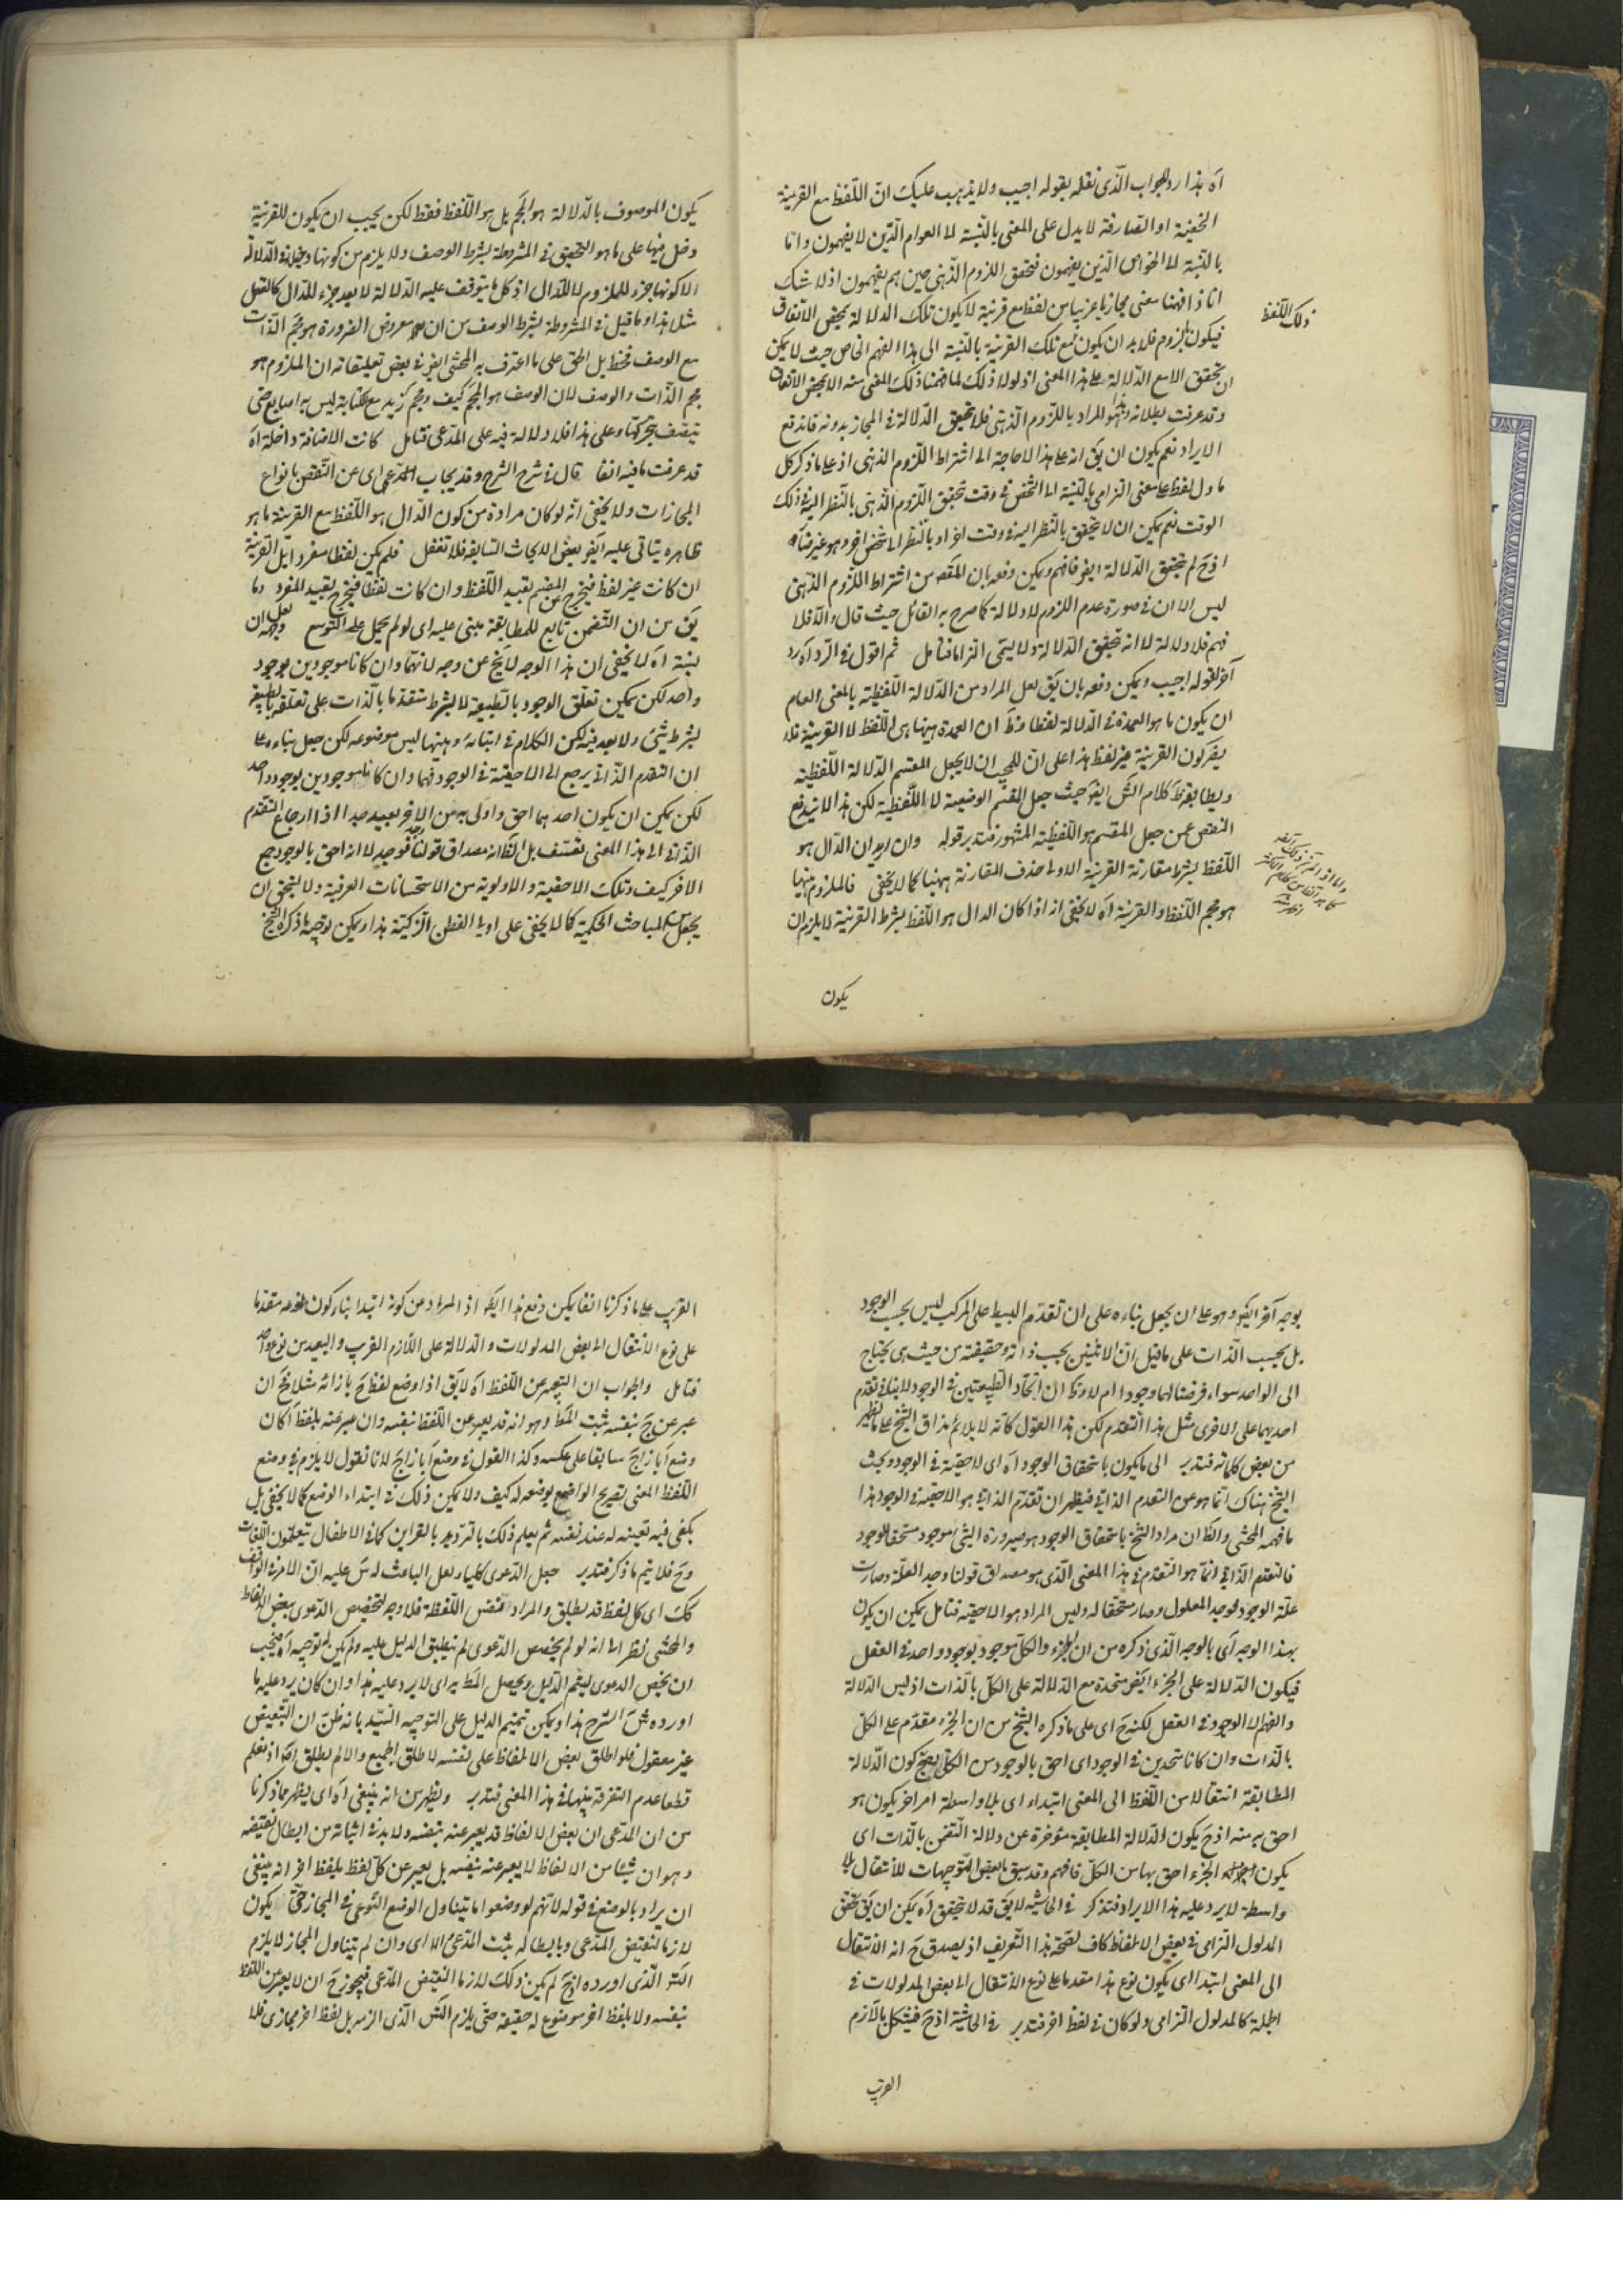 آه هذا رد للجواب الذى نقله بقوله اجيب ولا يذهب عليك ان اللفظ مع القرينة
الخفية او الصارفة لا يدل على المعنى بالنسبة الى العوام الذين لا يفهمون واما
بالنسبة الى الخواص الذين يفهمون فتحقق اللزوم الذهنى حين هم يفهمون اذ لا شك
انا اذا فهمنا معنى مجازيا من لفظ مع قرينة لا يكون تلك الدلالة بمحض الاتفاق
فيكون لزوم فلا بد ان يكون مع تلك القرينة بالنسبة الى هذا الفهم الخاص حيث لا يمكن
ان تحقق الا مع الدلالة على هذا المعنى اذ لولا ذلك لما فهمنا ذلك المعنى منه الا بمحض الاتفاق
وقد عرفت بطلانه وهذا هو المراد باللزوم الذهنى فلا تحقق الدلالة فى المجاز بدونه فاندفع
الايراد نعم يكون ان يق انه على هذا لا حاجة الى اشتراط اللزوم الذهنى اذ على ما ذكر كل
ما دل لفظ على معنى التزامى بالنسبة الى الشخص فى وقت تحقق اللزوم الذهنى بالنظر اليه فى ذلك
الوقت نعم يمكن ان لا يتحقق بالنظر اليه فى وقت اخر او بالنظر الى شخص اخر وهو غير ضائر
اذ ح لم تحقق الدلالة ايضا فافهم ويمكن دفعه بان المقصود من اشتراط اللزوم الذهنى
ليس الا ان فى صورة عدم اللزوم لا دلالة كما صرح به القائل حيث قال والا فلا
فهم فلا دلالة لا انه تحقق الدلالة ولا يسمى التزاما فتامل ثم اقول فى الرد آه رد
آخر لقوله اجيب ويمكن دفعه بان يق لعل المراد من الدلالة اللفظية بالمعنى العام
ان يكون ما هو العمدة فى الدلالة لفظا وظ ان العمدة ههنا هى اللفظ لا القرينة فلا
يضر كون القرينة غير لفظ هذا على ان للمجيب ان لا يجعل المقسم الدلالة اللفظية
ويطابقه ظ كلام الش ايضا حيث جعل المقسم الوضعية لا اللفظية لكن هذا لا يدفع
النقض عمن جعل المقسم هو اللفظية المشهور فتدبر قوله وان اريد ان الدال هو
اللفظ بشرط مقارنة القرينة الاولى حذف المقارنة ههنا كما لا يخفى فالملزوم ههنا
هو مجم اللفظ والقرينة آه لا يخفى انه اذا كان الدال هو اللفظ بشرط القرينة لا يلزم ان
ذلك اللفظ
يكون
يكون الموصوف بالدلالة هو المجم بل هو اللفظ فقط لكن يجب ان يكون للقرينة
دخل فيها على ما هو التحقيق فى المشروطة بشرط الوصف ولا يلزم من كونها دخيلة فى الدلالة
الا كونها جزء للملزوم لا للدال اذ كل ما يتوقف عليه الدلالة لا يعد جزء للدال كالعقل
مثلا هذا وما قيل فى المشروطة بشرط الوصف من ان معروض الضرورة هو مجم الذات
مع الوصف فخطا بل الحق على ما اعترف به المحشى ايضا فى بعض تعليقاته ان الملزوم هو
مجم الذات والوصف لا ان الوصف هو المجم كيف ومجم زيد مع الكتابة ليس به اصابع حتى
يتصف بتحركها وعلى هذا فلا دلالة فيه على المدعى فتامل كانت الاضافة داخلة آه
قد عرفت ما فيه انفا قال فى شرح الشرح وقد يجاب المدعى اى عن النقض بانواع
المجازات ولا يخفى انه لو كان مراده من كون الدال هو اللفظ مع القرينة ما هو
ظاهره يتاتى عليه ايضا بعض الابحاث السابقة فلا تغفل فلم يكن لفظا مفردا بل القرينة
ان كانت غير لفظ فيخرج عن المقسم بقيد اللفظ وان كانت لفظا فيخرج بقيد المفرد وما
يق من ان التضمن تابع للمطابقة مبنى عليه اى لو لم يحمل على التوسع
لا يخفى ان هذا الوجه لا يخ عن وجه لانهما وان كانا موجودين بوجود
واحد لكن يمكن تعلق الوجود بالطبيعة لا بشرط متقدما بالذات على تعلقه بالطبيعة
بشرط شئ ولا بعد فيه لكن الكلام فى اثباته وههنا ليس موضوعه لكن جعل بناءه على
ان التقدم الذاتى يرجع الى الاحقية فى الوجود فهما وان كانا موجودين بوجود واحد
لكن يمكن ان يكون احدهما احق واولى به من الاخر بعيد جدا اذ ارجاع التقدم
الذاتى الى هذا المعنى تعسف بل الظ انه مصداق قولنا وجد فوجد لا انه احق بالوجود من
الاخر كيف وتلك الاحقية والاولوية من الاستحسانات العرفية ولا ينبغى ان
يجعل من المباحث الحكمية كما لا يخفى على اولى الفطن الزكية هذا ويمكن توجيه ما ذكره الشيخ
بوجه آخر ايضا وهو على ان يجعل بناءه على ان تقدم البسيط على المركب ليس بحسب الوجود
بل بحسب الذات على ما قيل ان الاثنين بحسب ذاته وحقيقته من حيث هى يحتاج
الى الواحد سواء فرضنا لهما وجودا ام لا وظ ان اتحاد الطبيعتين فى الوجود لا ينافى تقدم
احديهما على الاخرى مثل هذا التقدم لكن هذا القول كانه لا يلائم مذاق الشيخ على ما يظهر
من بعض كلماته فتدبر الى ما يكون باستحقاق الوجود آه اى لاحقية فى الوجود وبحث
الشيخ هناك انما هو عن التقدم الذاتى فيظهر ان تقدم الذاتى هو الاحقية فى الوجود هذا
ما فهمه المحشى والظ ان مراد الشيخ باستحقاق الوجود هو صيرورة الشئ موجودا مستحقا للوجود
فالتقدم الذاتى انما هو التقدم فى هذا المعنى الذى هو مصداق قولنا وجد العلة وصارت
علة الوجود فوجد المعلول وصار مستحقا له وليس المراد هو الاحقية فتامل يمكن ان يكون
بهذا الوجه اى بالوجه الذى ذكره من ان الجزء والكل موجود بوجود واحد فى العقل
فيكون الدلالة على الجزء ايضا متحدة مع الدلالة على الكل بالذات اذ ليس الدلالة
والفهم الا الوجود فى العقل لكنه ح اى على ما ذكره الشيخ من ان الجزء مقدم على الكل
بالذات وان كانا متحدين فى الوجود اى احق بالوجود من الكل يصح كون الدلالة
المطابقة انتقالا من اللفظ الى المعنى ابتداء اى بلا واسطة امر اخر يكون هو
احق به منه اذ ح يكون الدلالة المطابقة مؤخرة عن دلالة التضمن بالذات اى
يكون الجزء احق بها من الكل فافهم وقد سبق بعض التوجيهات للانتقال بلا
واسطة لا يرد عليه هذا الايراد فتذكر فى الحاشية لا يق قد لا يتحقق آه يمكن ان يق تحقق
المدلول التزامى فى بعض الالفاظ كاف لصحة هذا التعريف اذ يصدق ح انه الانتقال
الى المعنى ابتداء اى يكون نوع هذا مقدما على نوع الانتقال الى بعض المدلولات فى
الجملة كالمدلول التزامى ولو كان فى لفظ اخر فتدبر فى الحاشية اذ ح فيشكل باللازم
القريب
القريب على ما ذكرنا انفا يمكن دفع هذا ايضا اذ المراد من كونه ابتداء بناء كون نوعه مقدما
على نوع الانتقال الى بعض المدلولات والدلالة على اللازم القريب والبعيد من نوع واحد
فتامل والجواب ان التعبير عن اللفظ آه لا يق اذا وضع لفظ ج بازائه مثلا فح ان
عبر عن ج بنفسه ثبت المط وهو انه قد يعبر عن اللفظ بنفسه وان عبر عنه بلفظ آ كان
وضع آ بازاء ج سابقا على عكسه وكذا القول فى وضع آ بازاء ج لانا نقول لا يلزم فى وضع
اللفظ المعنى تصريح الواضع بوضعه له كيف ولا يمكن ذلك فى ابتداء الوضع كما لا يخفى بل
يكفى فيه تعيينه له عند نفسه ثم يعلم ذلك بالترديد بالقراين كما فى الاطفال يتعلمون اللغات
وح فلا يتم ما ذكر فتدبر جعل الدعوى كليا ولعل الباعث له س عليه ان الامر فى الواقع
كك اى كل لفظ قد يطلق والمراد نفس اللفظ فلا وجه لتخصيص الدعوى ببعض الالفاظ
والمحشى نظر الى انه لو لم يخصص الدعوى لم ينطبق الدليل عليه ولم يكن له توجيه آه فيجب
ان يخص الدعوى ليتم الدليل ويحصل المط به اى لا يرد عليه هذا وان كان يرد عليه ما
اورده ش الشرح هذا ويمكن تتميم الدليل على التوجيه السيد بانه ظن ان التبعيض
غير معقول فلو اطلق بعض الالفاظ على نفسه لاطلق الجميع والا لم يطلق آه اذ نعلم
قطعا عدم التفرقة بينها فى هذا المعنى فتدبر ويظهر من انه ينبغى آه اى يظهر مما ذكرنا
من ان المدعى ان بعض الالفاظ قد يعبر عنه بنفسه ولا بد فى اثباته من ابطال نقيضه
وهو ان شيئا من الالفاظ لا يعبر عنه بنفسه بل يعبر عن كل لفظ بلفظ اخر انه ينبغى
ان يراد بالوضع فى قوله لانهم لو وضعوا ما يتناول الوضع النوعى فى المجاز حتى يكون
لازما لنقيض المدعى وبابطاله يثبت المدعى والا اى وان لم يتناول المجاز لا يلزم
الش الذى اورده اذ ح لم يكن ذلك لازما لنقيض المدعى فيجوز ح ان لا يعبر عن اللفظ
بنفسه ولا بلفظ اخر موضوع له حقيقة حتى يلزم الش الذى الزمه بل بلفظ اخر مجازى فلا